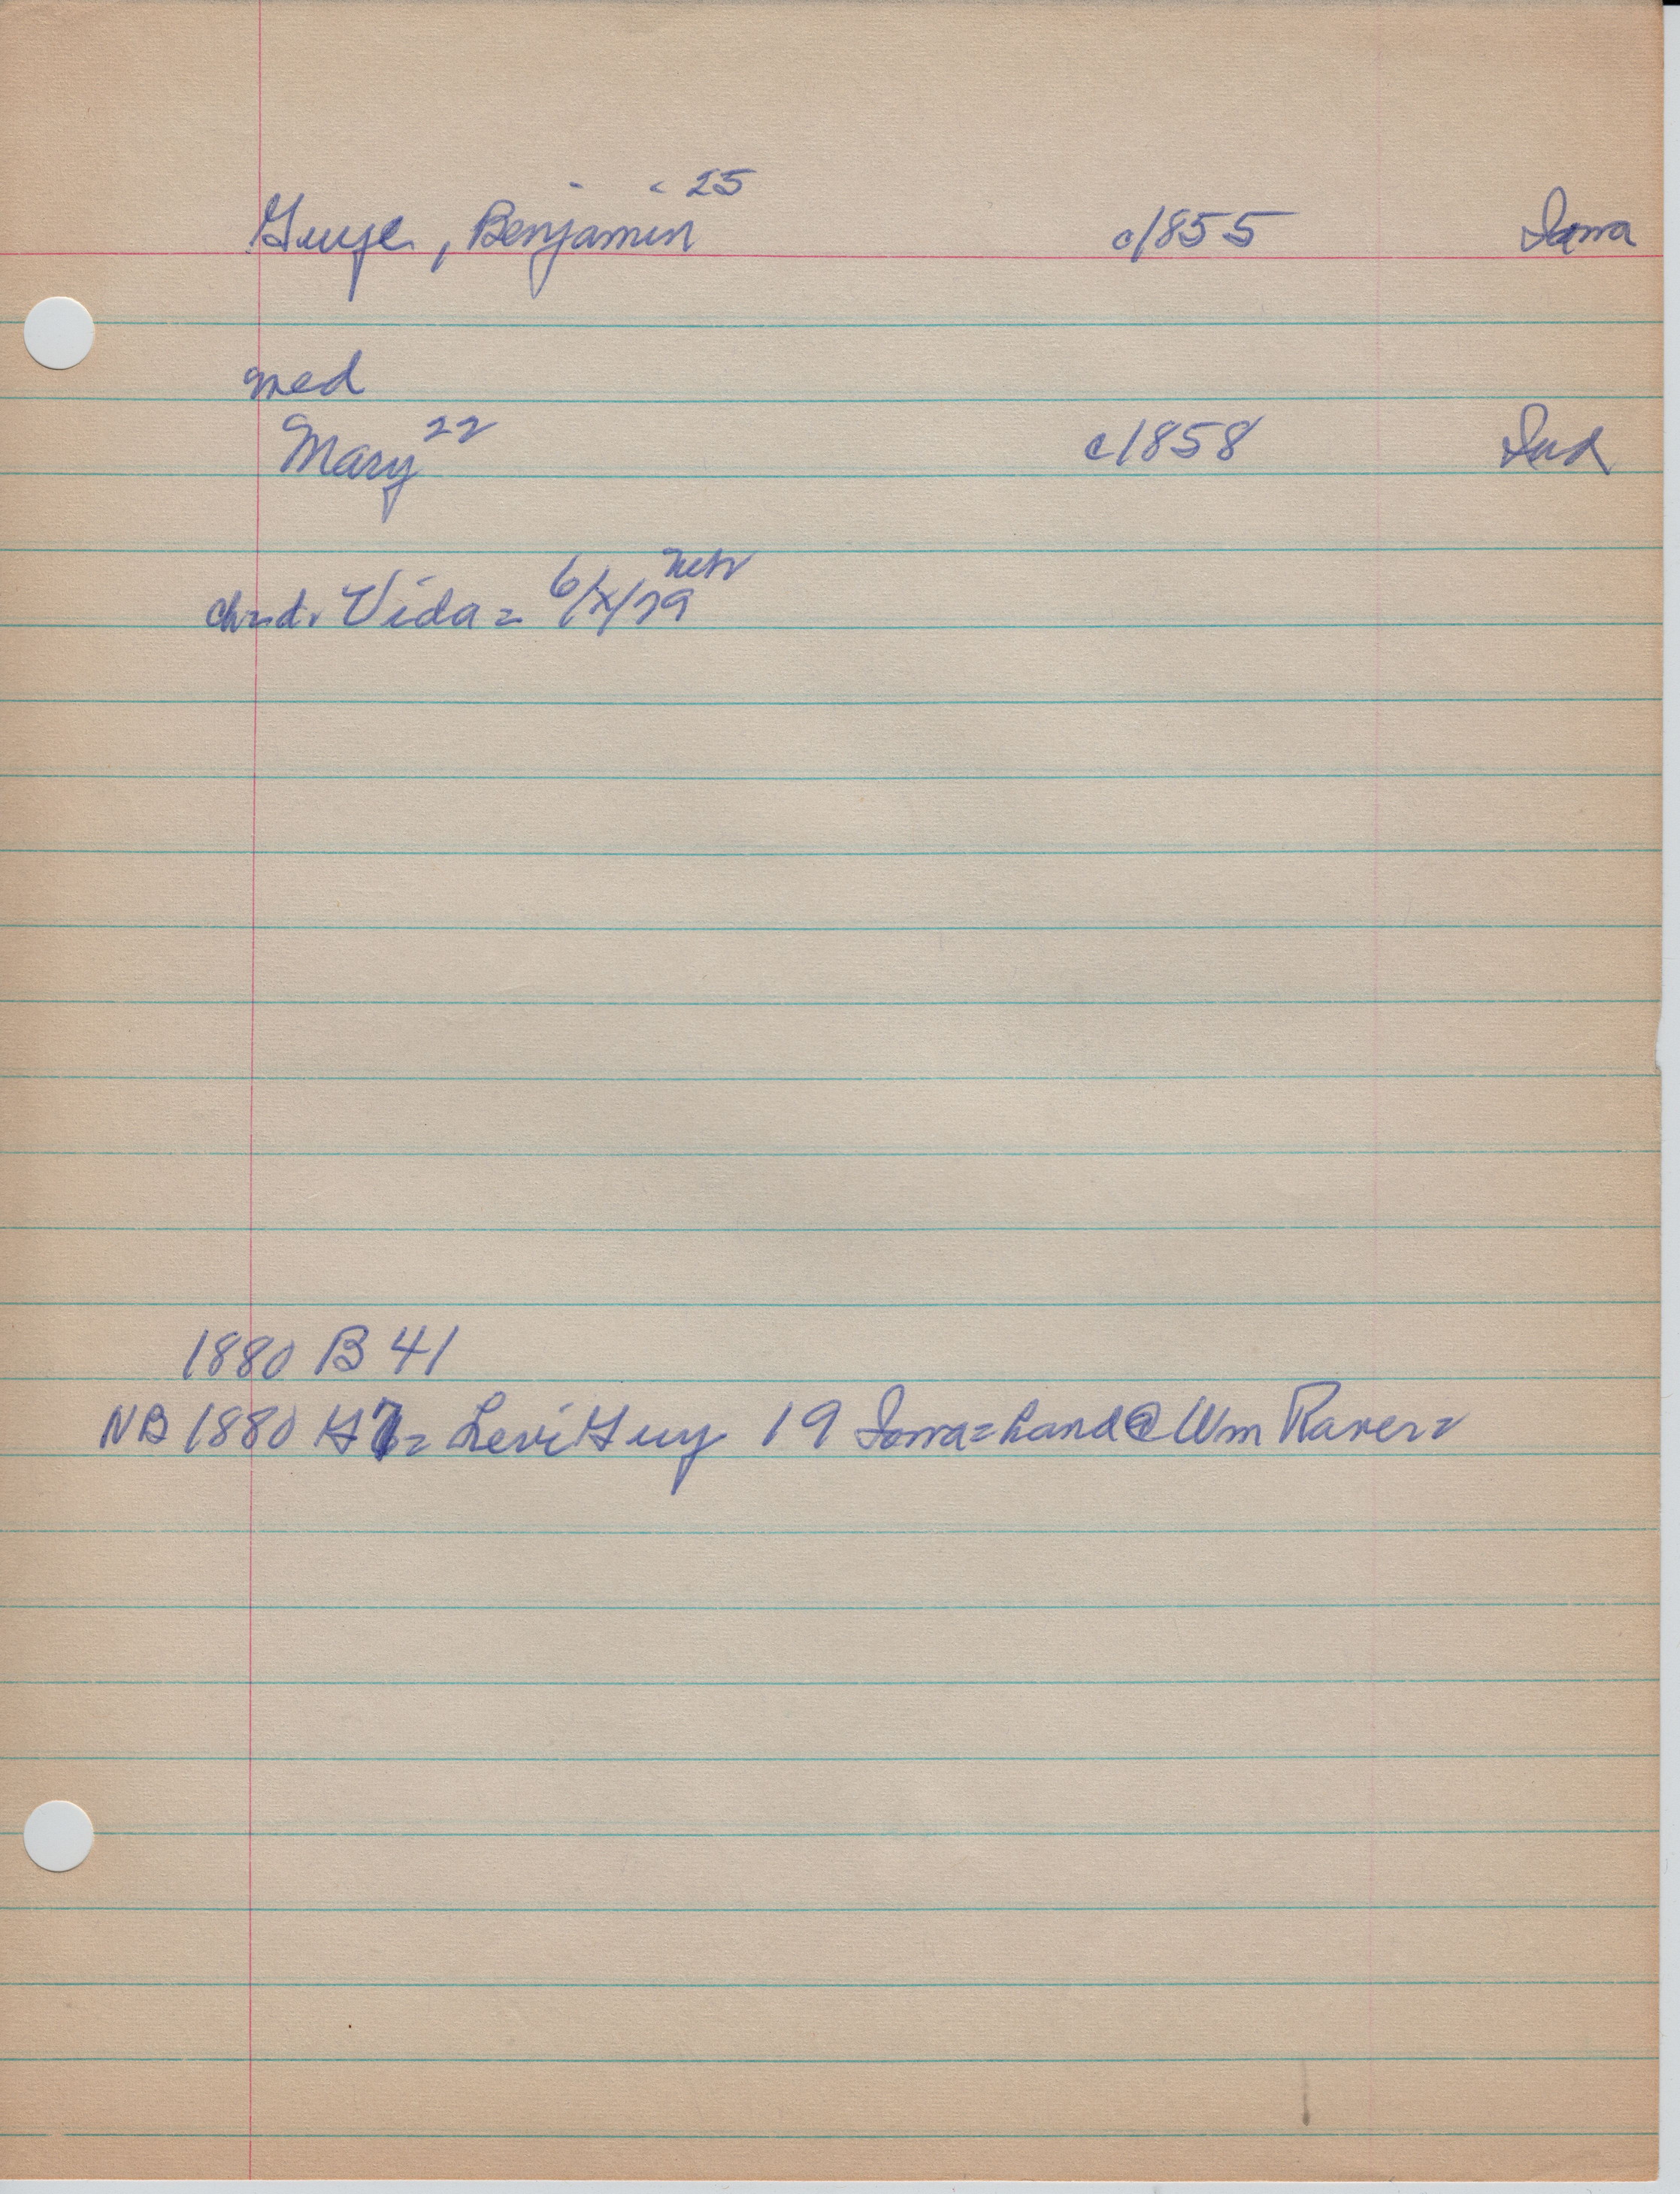 Guye, Benjamin 25 c/1855 Iowa
med
Mary 22 c/1858 Ind
ch=d. Vida = 6/x/79 Neb
1880 B 41
NB 1880 = Levi Guy 19 Iowa = hand @ Wm Raver =